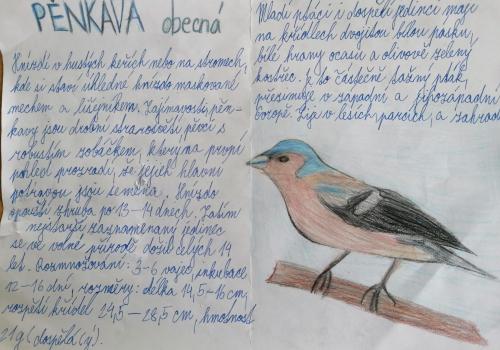 PĚNKAVA obecná
Hnízdí v hustých keřích nebo na stromech,
kde si staví úhledné hnízdo maskované
mechem a lišejníkem. Zajímavosti, pěn-
kavy jsou drobní starosvětští pěvci s
robustním zobáčkem, který na první
pohled prozradí, že jejich hlavní
potravou jsou semena. Hnízdo
opouští zhruba po 13-14 dnech. Zatím
nejstarší zaznamenaný jedinec
se ve volné přírodě dožil celých 14
let. Rozmnožování: 3-6 vajec, inkubace
12-16 dní, rozměry: délka 14,5-16 cm,
rozpětí křídel 24,5-28,5 cm, hmotnost
21g (dospělá(ý).
Mladí ptáci i dospělí jedinci mají
na křídlech dvojitou bílou pásku,
bílé hrany ocasu a olivově zelený
kostřec. Je to částečně tažný pták,
přezimuje v západní a jihozápadní
Evropě. Žije v lesích, parcích, a zahrad